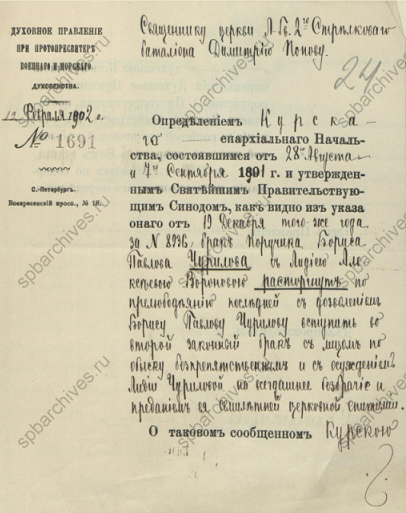 ДУХОВНОЕ ПРАВЛЕНІЕ
ПРИ ПРОТОПРЕСВИТЕРѢ
ВОЕННАГО И МОРСКАГО
ДУХОВЕНСТВА.
12 Февраля 1902 г.
№ 1691
С.-Петербургъ.
Воскресенскій просп., № 18.
Священнику церкви Л-Гв. 2го Стрѣлковаго
баталіона Димитрію Попову.
24
Опредѣленіемъ Курска-
го епархіальнаго Началь-
ства, состоявшимся отъ 28 Августа
и 7 Сентября 1901 г. и утвержден-
нымъ Святѣйшимъ Правительствую-
щимъ Синодомъ, какъ видно изъ указа
онаго отъ 19 Декабря того же года
за № 8936, бракъ Поручика Бориса
Павлова Чурилова съ Лидіею Але
ксѣевою Вороновою расторгнутъ по
прелюбодѣянію послѣдней съ дозволеніемъ
Борису Павлову Чурилову вступить во
второй законный бракъ съ лицомъ по
обыску безпрепятственнымъ и съ осужденіемъ
Лидіи Чуриловой на всегдашнее безбрачіе и
преданіемъ ея семилѣтней церковной епитиміи.
О таковомъ сообщенномъ Курскою
spbarchives.ru
spbarchives.ru
spbarchives.ru
spbarchives.ru
spbarchives.ru
spbarchives.ru